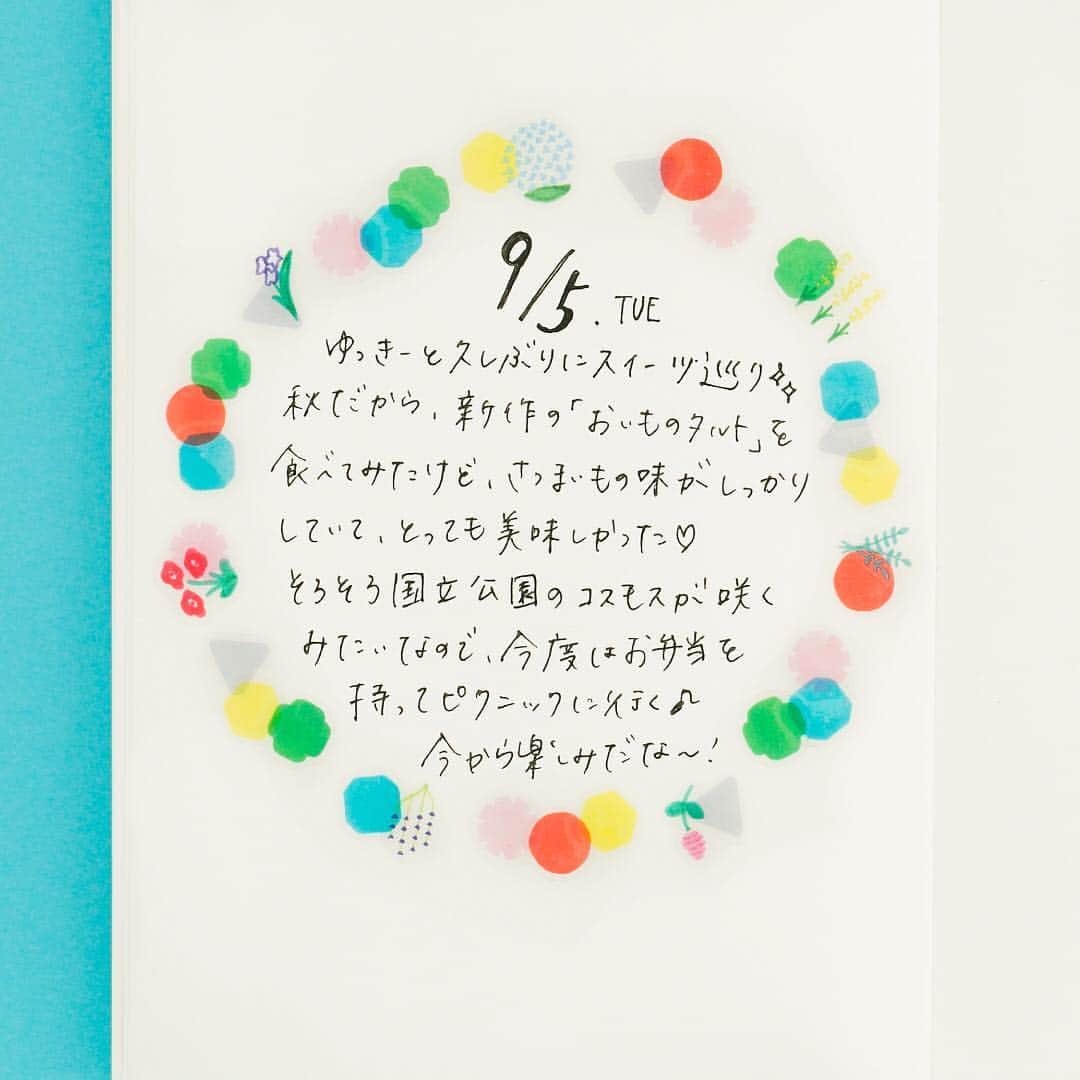 9/5. TUE
ゆっきーと久しぶりにスイーツ巡り
秋だから、新作の「おいものタルト」を
食べてみたけど、さつまいもの味がしっかり
していて、とっても美味しかった♡
そろそろ国立公園のコスモスが咲く
みたいなので、今度はお弁当を
持ってピクニックに行く♪
今から楽しみだな〜!